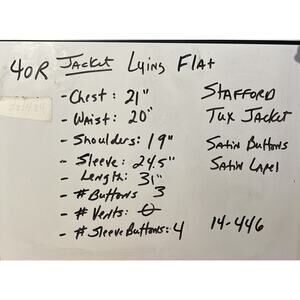 40R Jacket Lying Flat
- Chest: 21" Stafford
- Waist: 20" Tux Jacket
- Shoulders: 19" Satin Buttons
- Sleeve: 24.5" Satin Lapel
- Length: 31"
- # Buttons 3
- # Vents: 0
- # Sleeve Buttons: 4 14-446